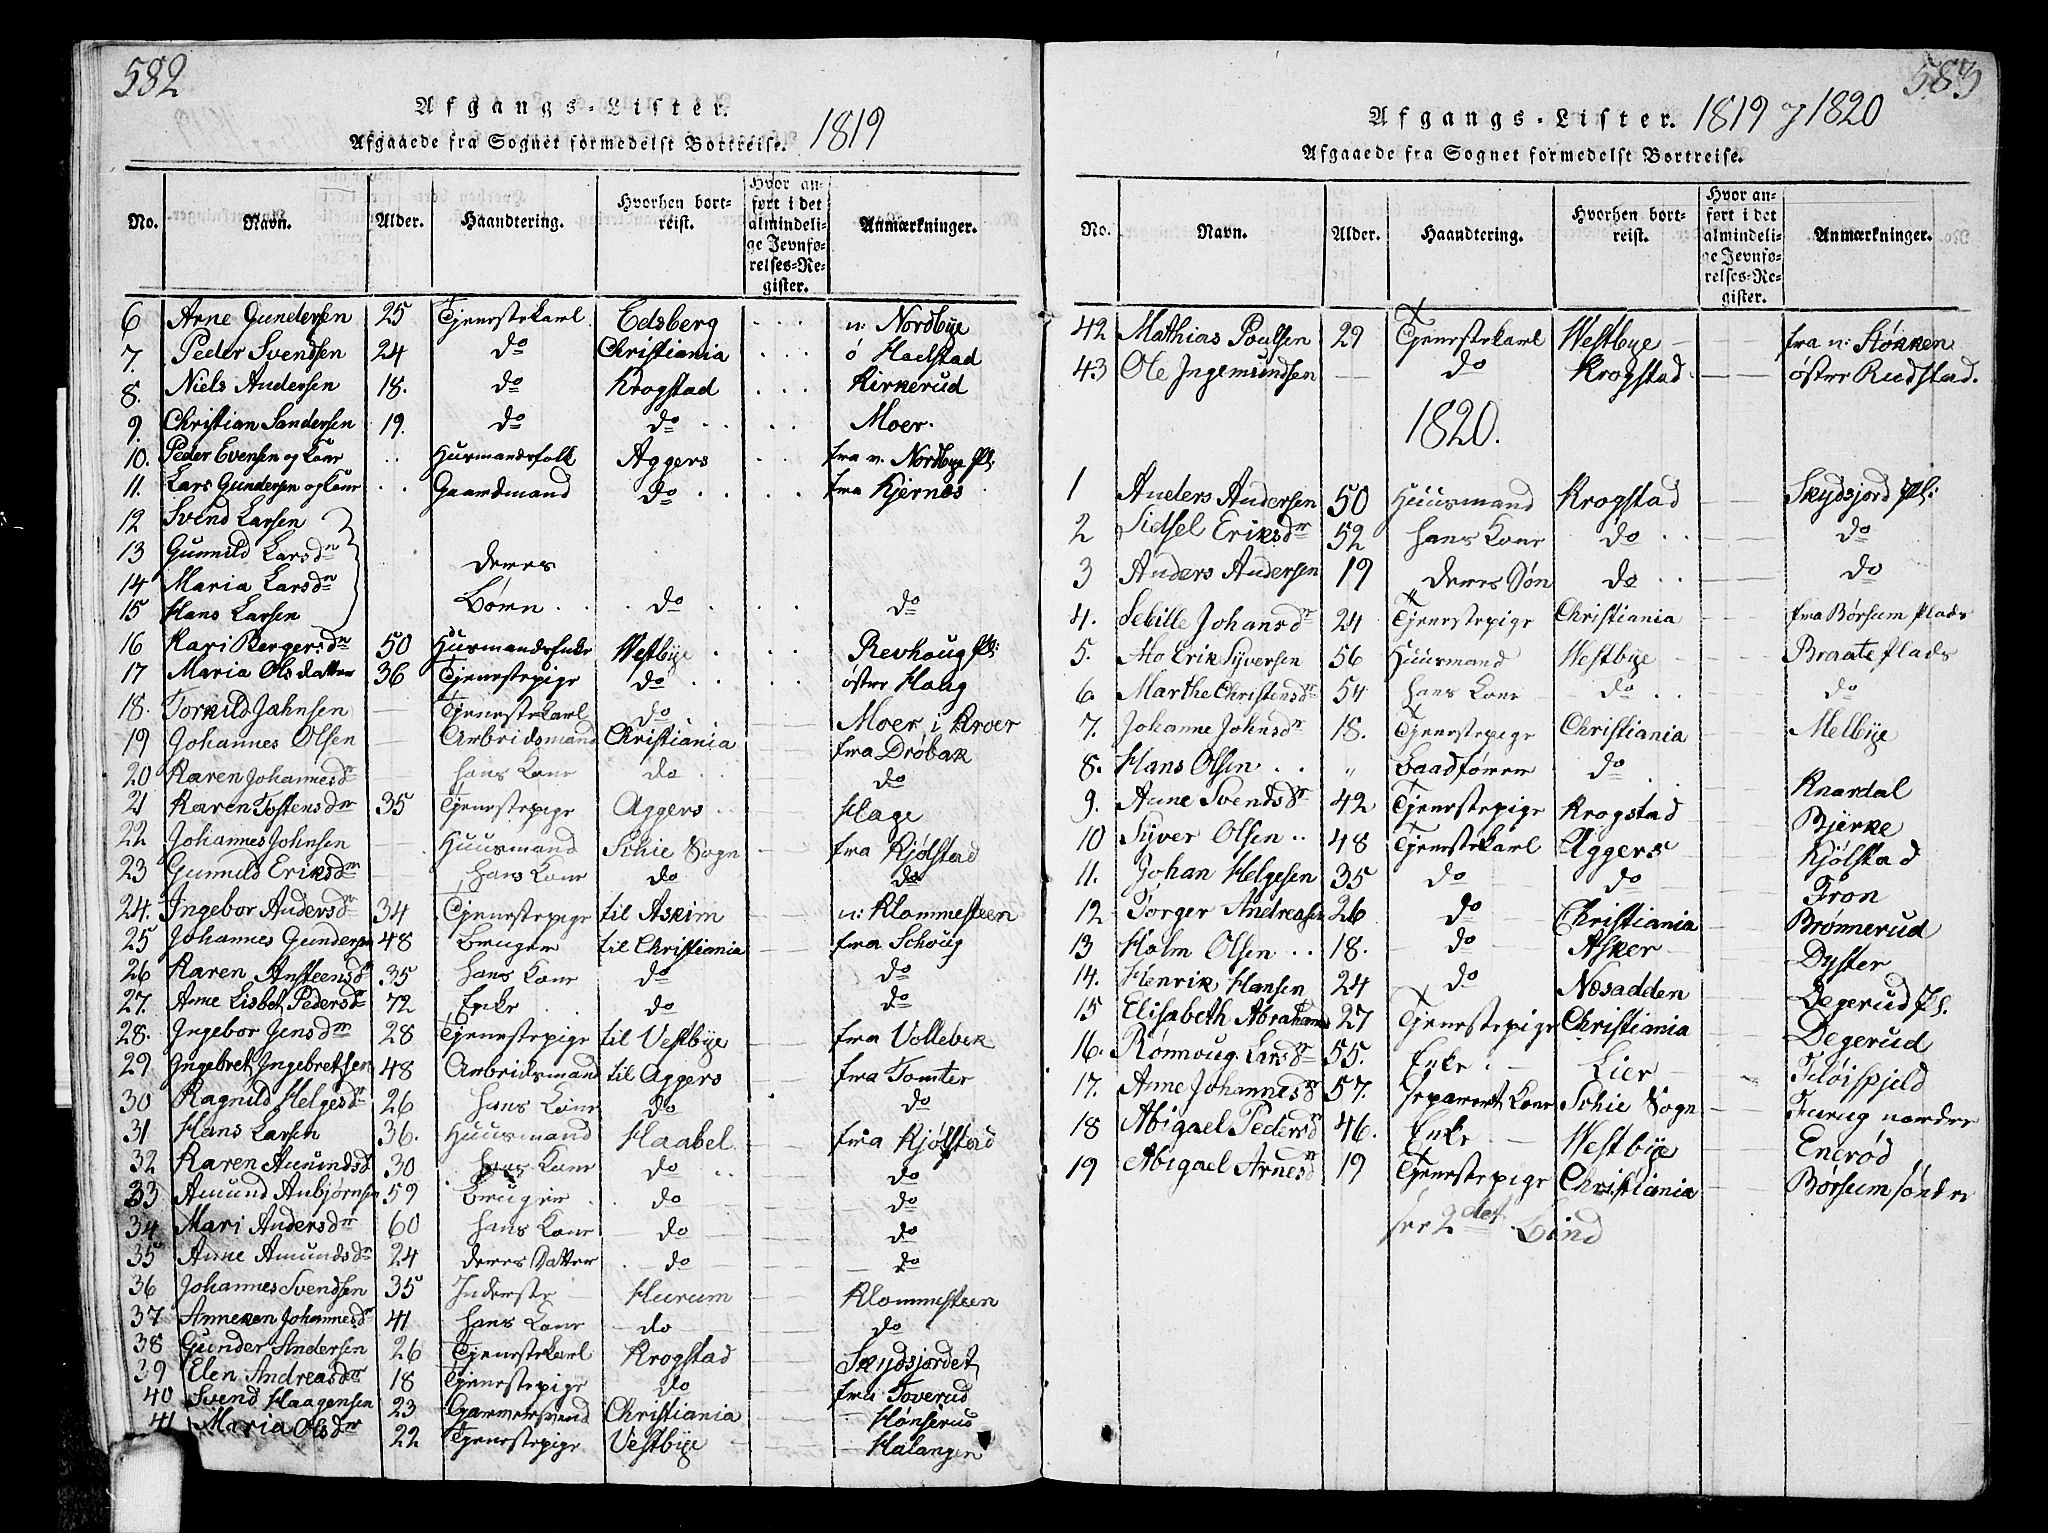 582
Afgangs-Lister.
Afgaaede fra Sognet formedelst Bortreise. 1819
No. Navn. Alder. Haandtering. Hvorhen bortreist. Hvor anført i det almindelige Jevnførelses-Register. Anmærkninger.
6 Arne Gundersen 25 Tjenestekarl Edsberg . . . n: Nordbye
7. Peder Svendsen 24 do Christiania . . . ö Haelstad
8. Niels Andersen 18. do Krogstad . . . Kirkerud
9. Christian Sandersen 19. do do . . . . Moer.
10. Peder Evensen og Kone . . Huusmandsfolk Aggers . . fra n. Nordbye Pl:
11. Lars Gundersen og Kone . . Gaardmand do . . . . fra Kjernes
12 Svend Larsen
13 Gunnild Larsdr
14 Maria Larsdr deres
15 Hans Larsen Börn . . . . do . . . do
16 Kari Bergersdr 50 Huusmandsenke Westbye . . . Revhoug Pl:
17 Maria Olsdatter 36 Tjenestepige do . . . . östre Haug
18. Torkild Jahnsen — Tjenestekarl do — Moer i Kroer
19 Johannes Olsen — Arbeidsmand Christiania — fra Dröbak
20 Karen Johannesdr — hans Kone do . . do
21 Karen Tostensdr 35 Tjenestepige Aggers . . Hage
22 Johannes Johnsen — Huusmand Schie Sogn — fra Kjölstad
23 Gunnild Eriksdr — hans Kone do do
24. Ingebor Andersdr 34 Tjenestepige til Askim n: Klommesteen
25 Johannes Gundersen 48 Bruger til Christiania — fra Schoug
26 Karen Ansteensdr 35 hans Kone do do
27. Anne Lisbet Pedersdr 72 Enke . . do do
28. Ingebor Jensdr 28 Tjenestepige til Vestbye — fra Vollebek
29 Ingebret Ingebretsen 48 Arbeidsmand til Aggers — fra Tomter
30 Ragnild Helgesdr 26 hans Kone do do
31 Hans Larsen 36. Huusmand Haabel — fra Kjölstad
32 Karen Amundsdr 30 hans Kone do . . do
33 Amund Anbjörnsen 59 Bruger . do do
34 Mari Andersdr 60 hans Kone do do
35 Anne Amundsdr 24 deres Datter . do do
36 Johannes Svendsen 35 Inderste — Hurum Klommesteen
37 Anneken Johannesdr 41 hans Kone — do — do
38 Gunder Andersen 26 Tjenestekarl Krogstad Skydsjordet
39 Elen Andreasdr 18 Tjenestepige do fra Toverud
40 Svend Haagensen 23 Garversvend Christiania — Hönserud
41 Maria Olsdr 22 Tjenestepige Vestbye — Halangen
583
Afgangs-Lister. 1819 og 1820
Afgaaede fra Sognet formedelst Bortreise.
No. Navn. Alder. Haandtering. Hvorhen bortreist. Hvor anført i det almindelige Jevnførelses-Register. Anmærkninger.
42 Mathias Poulsen 29 Tjenestekarl Westbye — fra n: Stökken
43 Ole Ingemundsen — do Krogstad — östre Rudstad.
1820.
1 Anders Andersen 50 Huusmand Krogstad — Skydsjord Pl:
2 Sidsel Eriksdr 52 hans Kone do . . do
3 Anders Andersen 19 deres Sön do . . do
4. Sebille Johansdr 24 Tjenestepige Christiania — fra Börsum Plads
5. Erik Syversen 56 Huusmand Westbye — Braate Plads
6. Marthe Christensdr 54 hans Kone — do . . do
7. Johanne Johnsdr 18. Tjenestepige Christiania — Melbye
8. Hans Olsen . . " Baadförer do . Knardal
9. Anne Svendsdr 42 Tjenestepige Krogstad Bjerke
10 Syver Olsen . . 48 Tjenestekarl Aggers — Kjölstad
11. Johan Helgesen 35 do do Fron
12 Torger Andreasen 26 do Christiania Brönnerud
13 Holm Olsen . . . 18. do — Asker — Dyster
14. Henrik Hansen 24 do Nesodden Degerud Pl.
15 Elisabeth Abrahamsdr 27 Tjenestepige Christiania Degerud
16. Rönnoug Larsdr 55. Enke . — Lier — Flöispjeld
17. Anne Johannesdr 57. separert Kone Schie Sogn — Furug nordre
18 Abigael Pedersdr 46. Enke . — Westbye Eneröd
19 Abigael Arnesdr 19 Tjenestepige Christiania — Börsum söndre
see 2det Bind